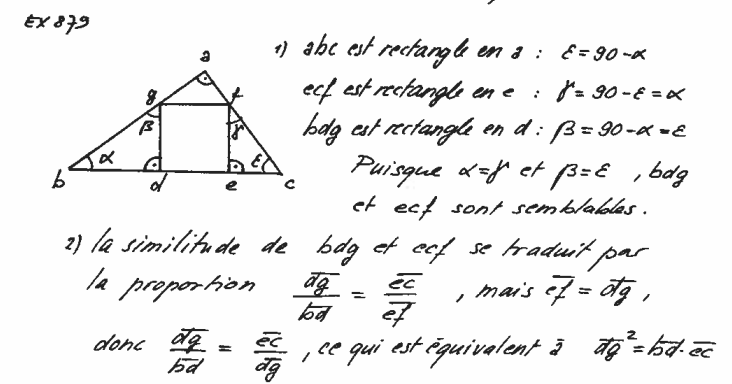 EX 879
1) abc est rectangle en a : ε = 90 - α
ecf est rectangle en e : γ = 90 - ε = α
bdg est rectangle en d : β = 90 - α = ε
Puisque α = γ et β = ε , bdg
et ecf sont semblables.
a
g
f
β
γ
α
ε
b
d
e
c
2) la similitude de bdg et ecf se traduit par
la proportion d̅g̅/b̅d̅ = e̅c̅/e̅f̅ , mais e̅f̅ = d̅g̅ ,
donc d̅g̅/b̅d̅ = e̅c̅/d̅g̅ , ce qui est équivalent à d̅g̅² = b̅d̅ · e̅c̅